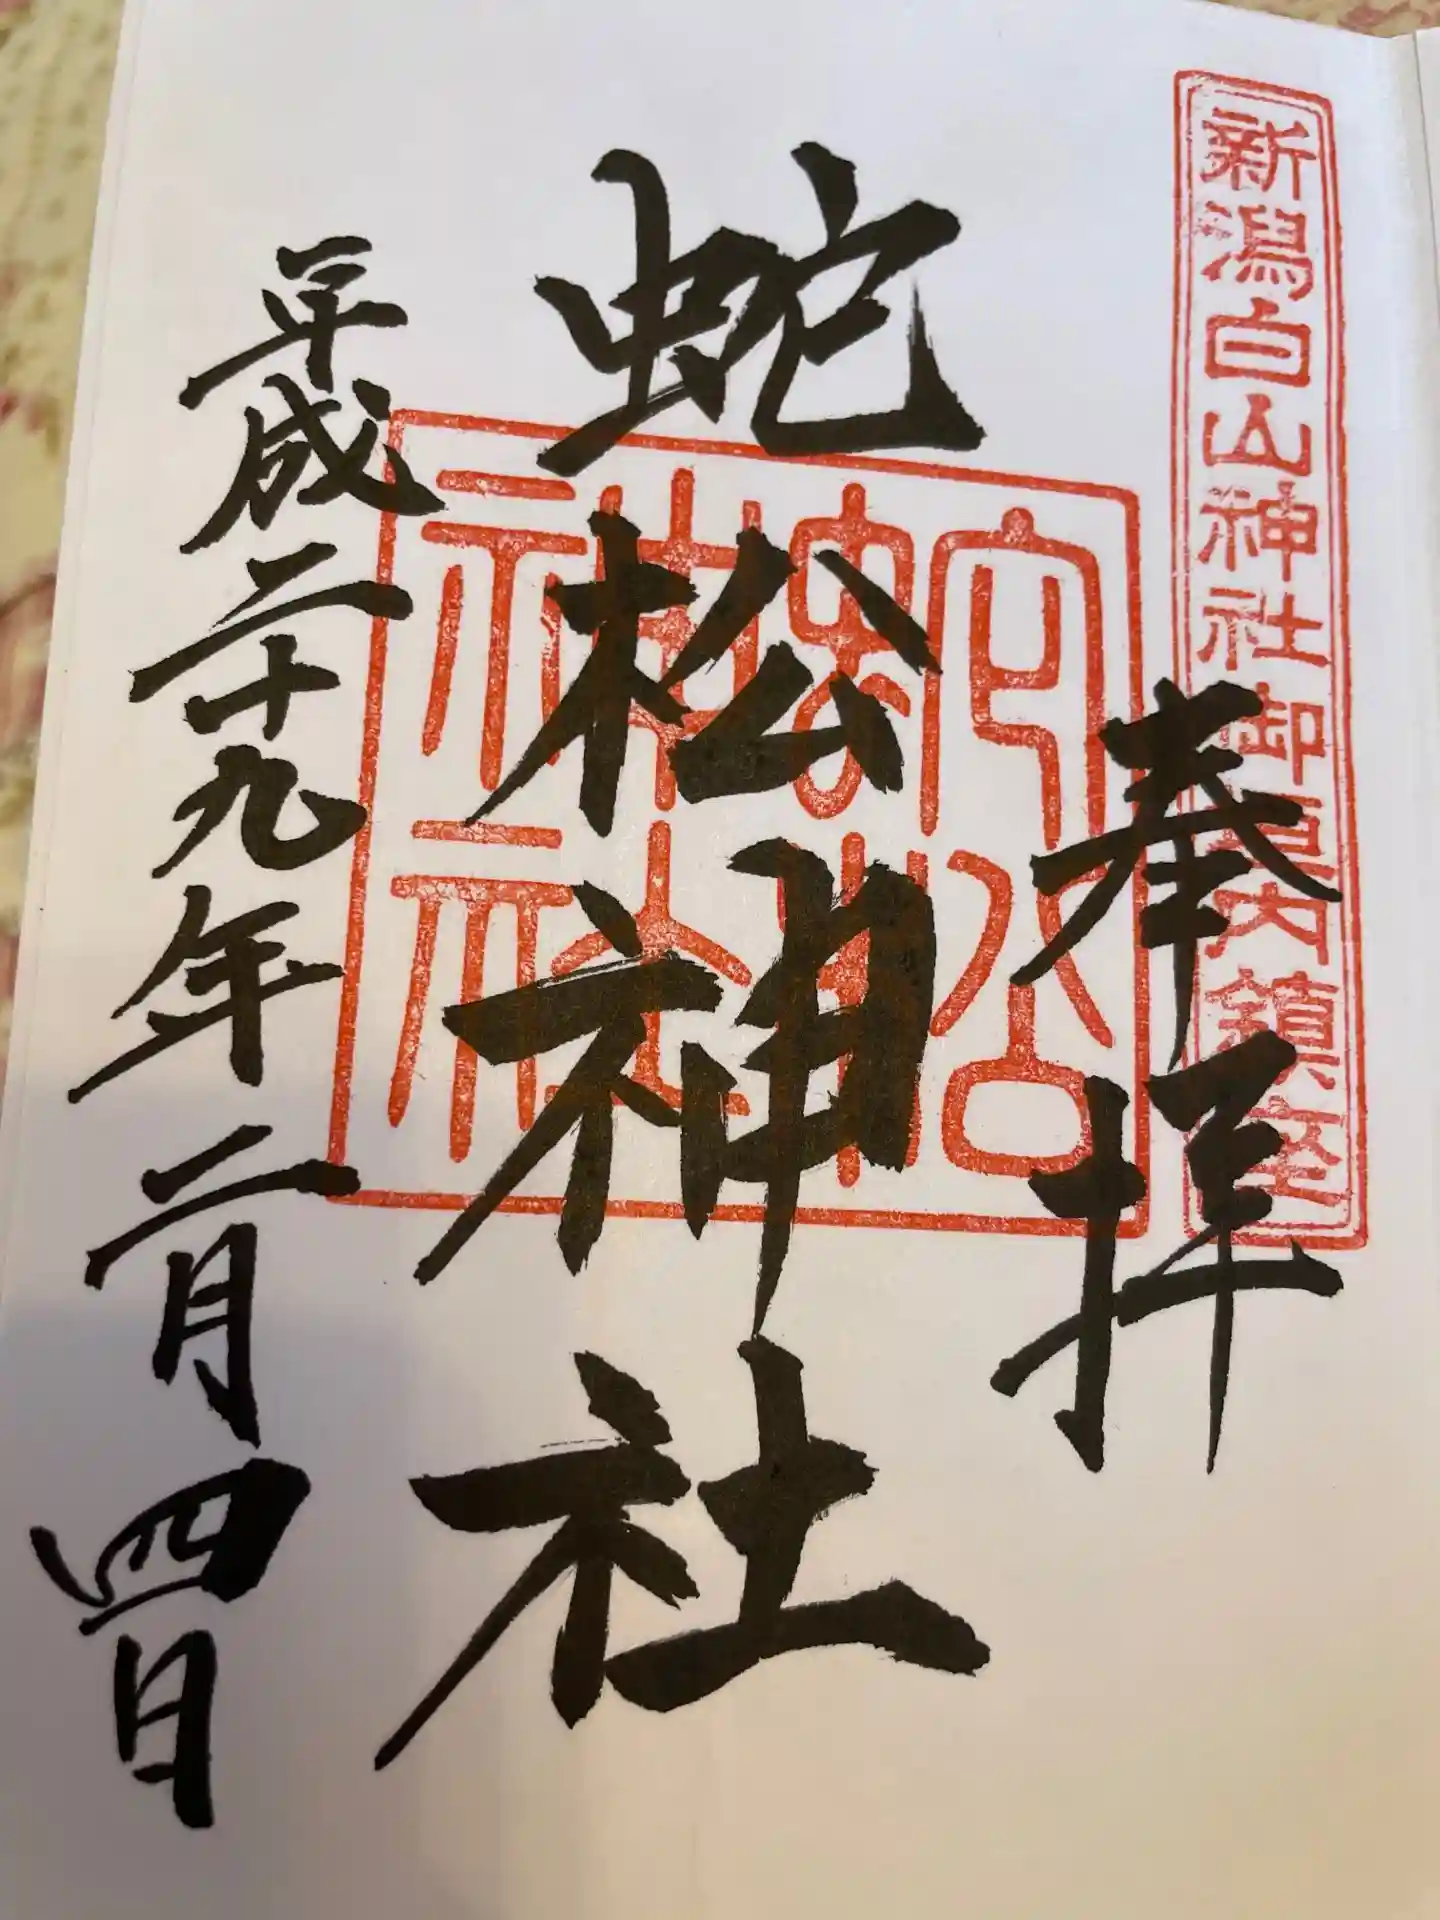 新潟白山神社御垣内鎮座
奉拝
蛇松神社
蛇松神社
平成二十九年二月四日